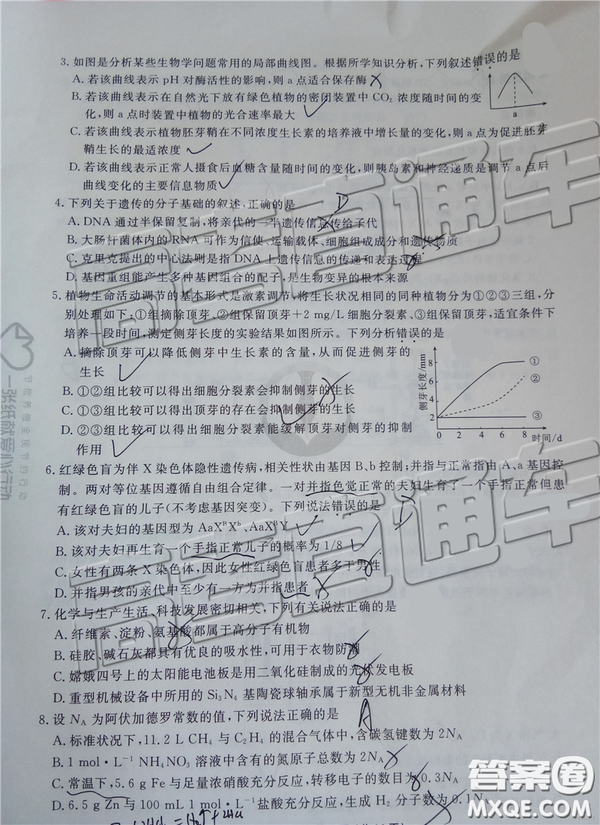 3. 如图是分析某些生物学问题常用的局部曲线图。根据所学知识分析，下列叙述错误的是
A. 若该曲线表示 pH 对酶活性的影响，则 a 点适合保存酶
B. 若该曲线表示在自然光下放有绿色植物的密闭装置中 CO₂ 浓度随时间的变
化，则 a 点时装置中植物的光合速率最大
C. 若该曲线表示植物胚芽鞘在不同浓度生长素的培养液中增长量的变化，a 点为促进胚芽
鞘生长的最适浓度
D. 若该曲线表示正常人摄食后血糖含量随时间的变化，则胰岛素和神经递质是调节 a 点后
曲线变化的主要信息物质
a
4. 下列关于遗传的分子基础的叙述，正确的是
A. DNA 通过半保留复制，将亲代的一半遗传信息传给子代
B. 大肠杆菌体内的 RNA 可作为信使、运输载体、细胞组成成分和遗传物质
C. 克里克提出的中心法则是指 DNA 上遗传信息的传递和表达过程
D. 基因重组能产生多种基因组合的配子，是生物变异的根本来源
5. 植物生命活动调节的基本形式是激素调节，将生长状况相同的同种植物分为①②③三组，分
别处理如下：①组摘除顶芽，②组保留顶芽+2 mg/L 细胞分裂素，③组保留顶芽，适宜条件下
培养一段时间，测定侧芽长度的实验结果如图所示。下列分析错误的是
A. 摘除顶芽可以减少侧芽中生长素的含量，从而促进侧芽的
生长
B. ①②组比较可以得出细胞分裂素会抑制侧芽的生长
C. ①③组比较可以得出顶芽的存在会抑制侧芽的生长
D. ②③组比较可以得出细胞分裂素能缓解顶芽对侧芽的抑制
作用
侧芽长度/mm
8
6
4
2
0 2 4 6 8 时间/d
①
②
③
6. 红绿色盲为伴 X 染色体隐性遗传病，相关性状由基因 B、b 控制；并指与正常指由 A、a 基因控
制。两对等位基因遵循自由组合定律。一对并指色觉正常的夫妇生育了一个手指正常但患
有红绿色盲的儿子(不考虑基因突变)。下列说法错误的是
A. 该对夫妇的基因型为 AaXᴮXᵇ、AaXᴮY
B. 该对夫妇再生育一个手指正常儿子的概率为 1/8
C. 女性有两条 X 染色体，因此女性红绿色盲患者多于男性
D. 并指男孩的亲代中至少有一方为并指患者
7. 化学与生产生活、科技发展密切相关，下列有关说法正确的是
A. 纤维素、淀粉、氨基酸都属于高分子有机物
B. 硅胶、碱石灰都具有优良的吸水性，可用于衣物防潮
C. 嫦娥四号上的太阳能电池板是用二氧化硅制成的光伏发电板
D. 重型机械设备中所用的 Si₃N₄ 基陶瓷球轴承属于新型无机非金属材料
8. 设 N_A 为阿伏加德罗常数的值，下列说法正确的是
A. 标准状况下，11.2 L CH₄ 与 C₂H₄ 的混合气体中，含碳氢键数为 2N_A
B. 1 mol·L⁻¹ NH₄NO₃ 溶液中含有的氮原子总数为 2N_A
C. 常温下，5.6 g Fe 与足量浓硝酸充分反应，转移电子的数目为 0.3N_A
D. 6.5 g Zn 与 100 mL 1 mol·L⁻¹ 盐酸充分反应，生成 H₂ 分子数为 0.1N_A
高考直通车
高考直通车
高考直通车
答案卷
MXQE.COM